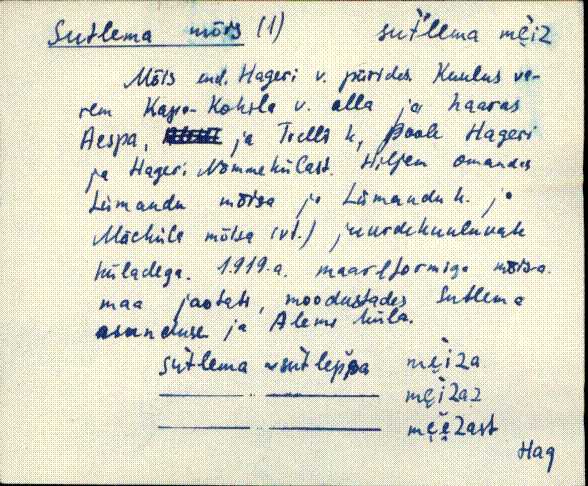 Sutlema mõis (1) sut̆lema mɛ̮iz
Mõis end. Hageri v. piirides. Kuulus va-
rem Kapa-Kohila v. alla ja haaras
Aespa, ja k, poole Hageri
ja Hageri Nõmmekülast. Hiljem omandas
Liimandu mõisa ja Liimandu k. ja
Mäeküla mõisa (vt.) juurdekuuluvate
küladega. 1919.a. maareformiga mõisa
maa jaotati, moodustades Sutlema
asunduse ja küla.
sut̆lema ~ sut̆leppa mɛ̮̀iza
mɛ̮̀izaz
Hag